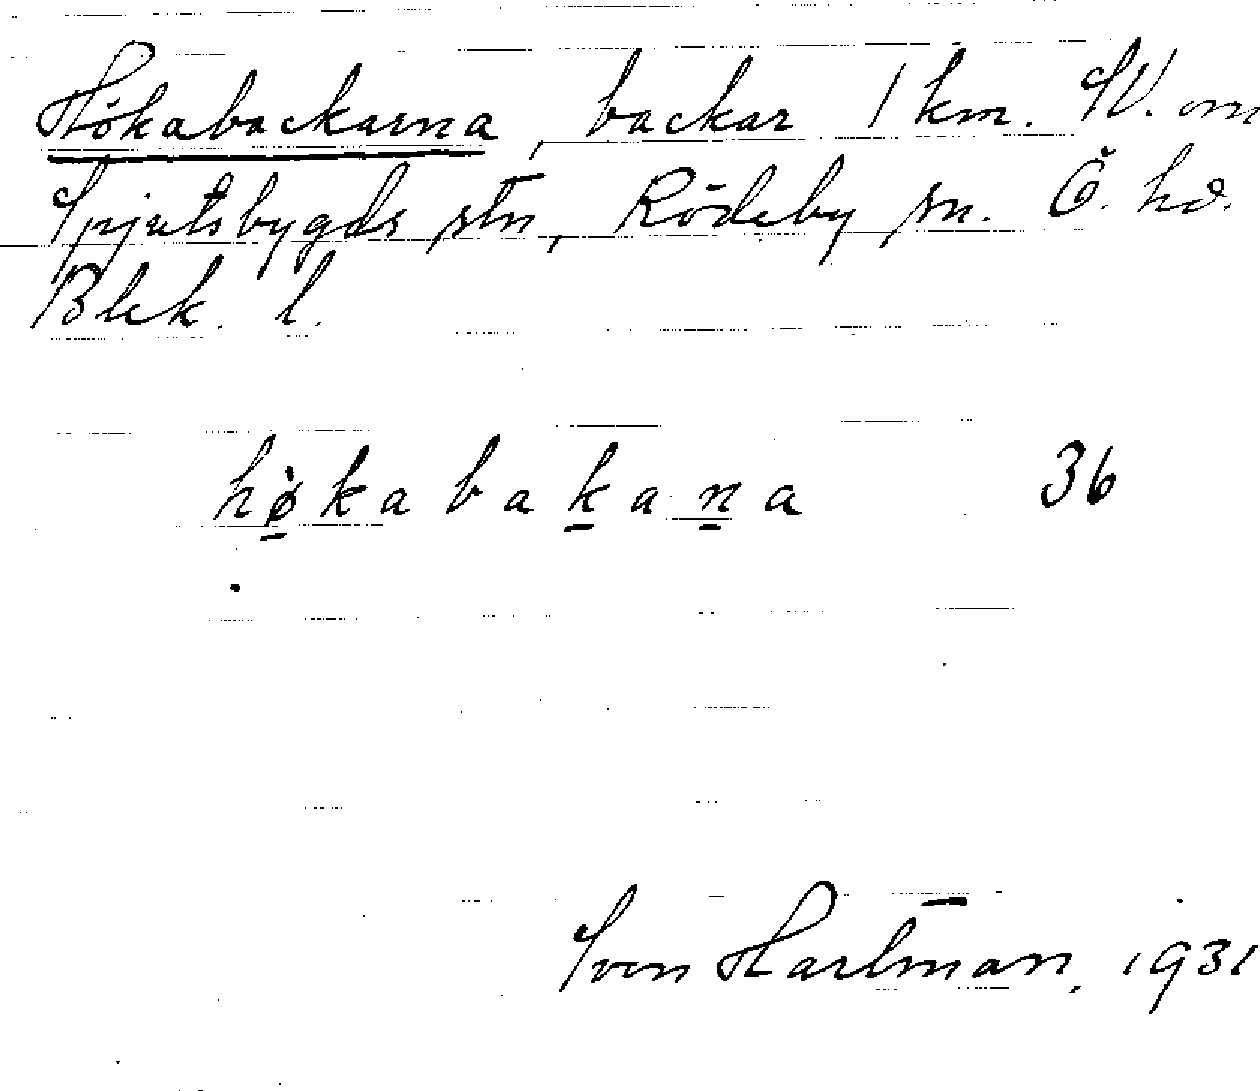 Hökabackarna, backar 1 km. SV. om
Spjutsbygds stn, Rödeby sn. Ö. hd.
Blek. l.
hø̀kabakana 36
Sven Hartman, 1931